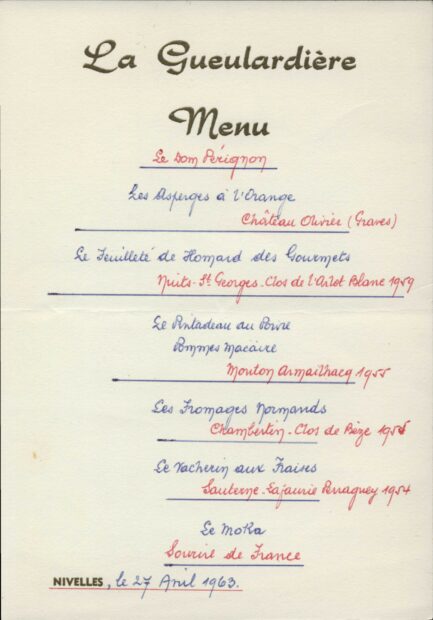 La Gueulardière
Menu
Le Dom Pérignon
Les Asperges à l'Orange
Château Olivier (Graves)
Le Feuilleté de Homard des Gourmets
Nuits-St Georges-Clos de l'Arlot Blanc 1959
Le Pintadeau au Poivre
Pommes Macaire
Mouton Armailhacq 1955
Les Fromages Normands
Chambertin-Clos de Bèze
Le Vacherin aux Fraises
Sauterne-Lafaurie Peraguey 1954
Le Moka
Sourire de France
NIVELLES, le 27 Avril 1963.